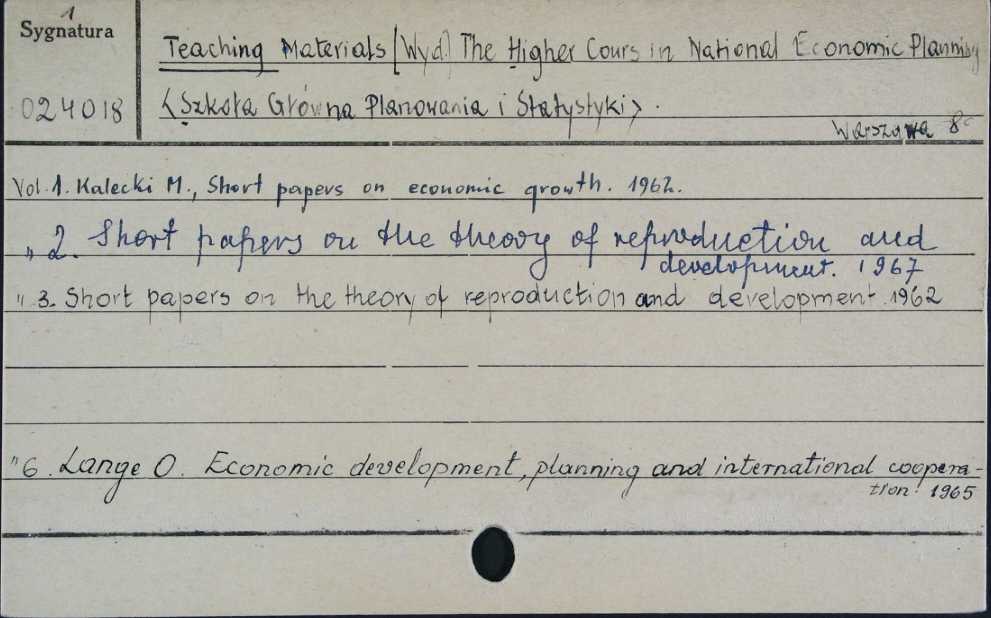 1
Sygnatura
Teaching Materials [Wyd.] The Higher Cours in National Economic Planning
024018 <Szkoła Główna Planowania i Statystyki>.
Warszawa 8°
Vol. 1. Kalecki M., Short papers on economic growth. 1962.
" 2. Short papers on the theory of reproduction and
development. 1967
" 3. Short papers on the theory of reproduction and development. 1962
" 6. Lange O. Economic development, planning and international coopera-
tion. 1965